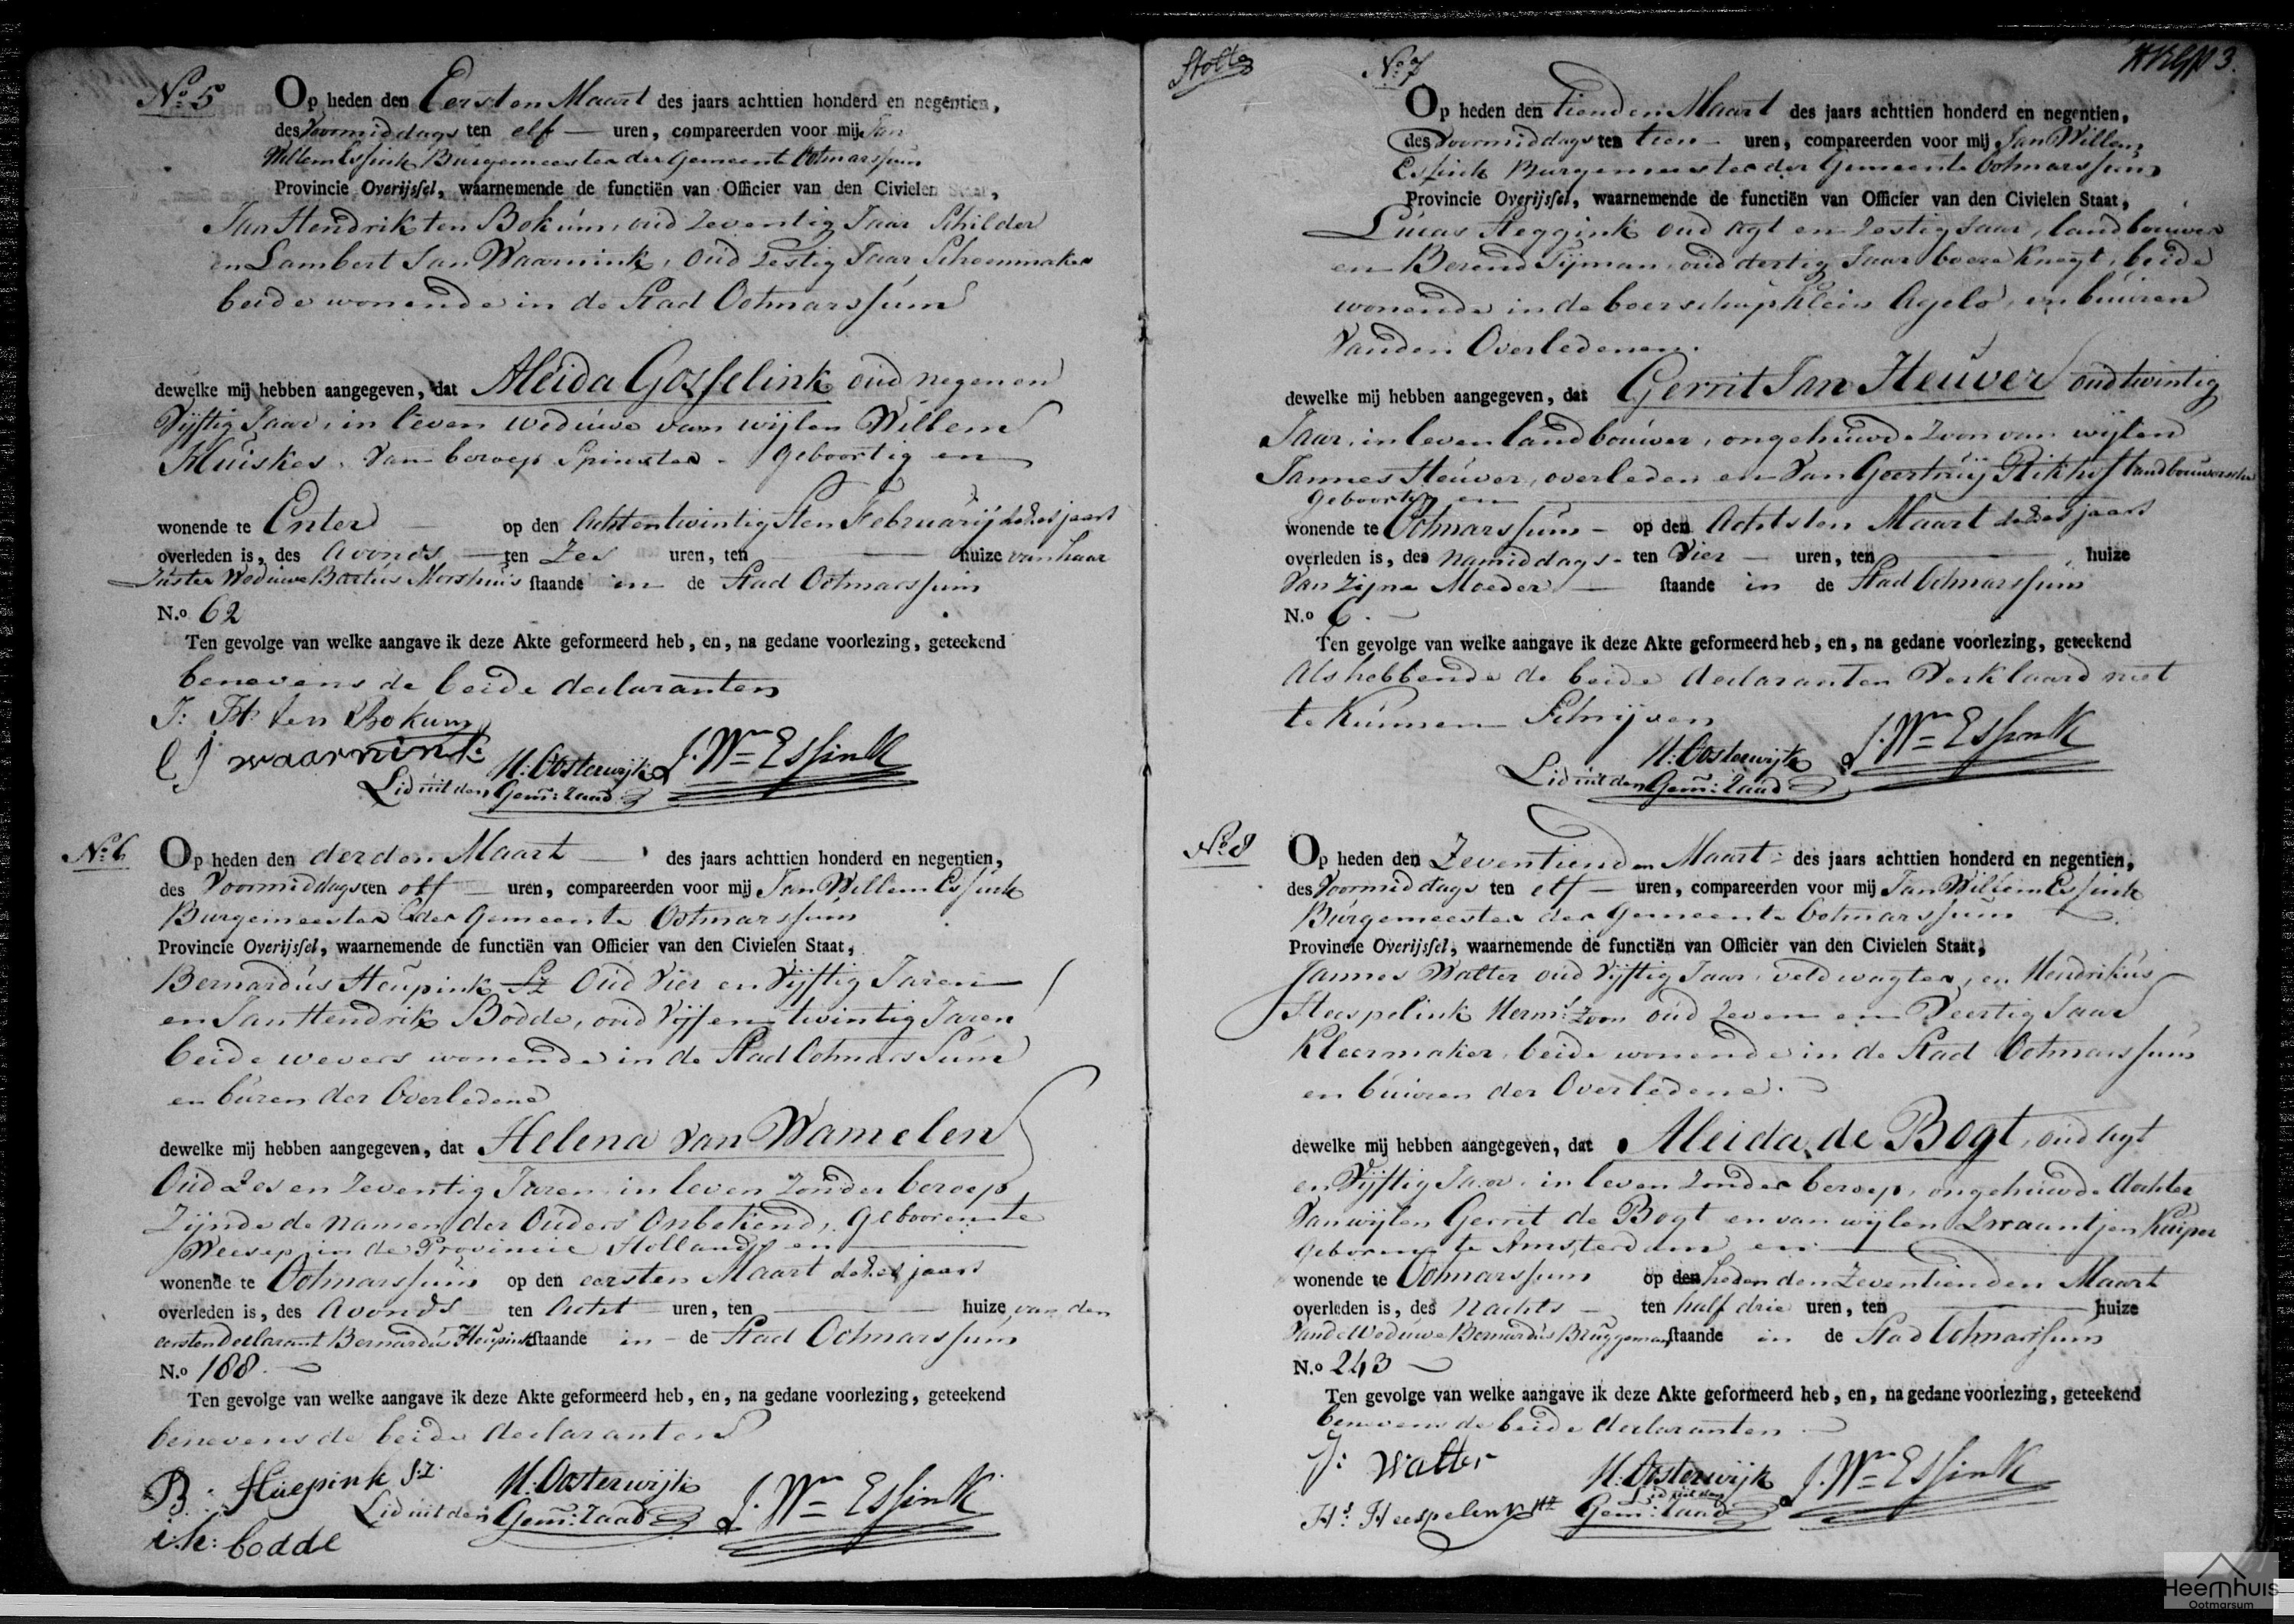 No 5
Op heden den Eersten Maart des jaars achttien honderd en negentien,
des Voormiddags ten elf uren, compareerden voor mij Jan
Willem Essink Burgemeester der Gemeente Ootmarssum
Provincie Overijssel, waarnemende de functiën van Officier van den Civielen Staat,
Jan Hendrik ten Bokum, oud Zeventig Jaar Schilder
en Lambert Jan Waarnink, Oud Zestig Jaar Schoenmaker
beide wonende in de Stad Ootmarssum
dewelke mij hebben aangegeven, dat Aleida Gosselink oud negen en
Vijftig Jaar, in leven weduwe van wijlen Willem
Kuiskes, van beroep Spinster - Geboortig en
wonende te Enter op den Achtentwintigsten Februarij dezes jaars
overleden is, des Avonds ten Zes uren, ten huize van haar
Zuster Weduwe Bartus Morshuis staande in de Stad Ootmarssum
N.o 62
Ten gevolge van welke aangave ik deze Akte geformeerd heb, en, na gedane voorlezing, geteekend
benevens de beide declaranten
J: H: ten Bokum
l j waarnink
H: Oosterwijk J. Wm Essink
Lid uit den Gem: raad
No 6
Op heden den derden Maart des jaars achttien honderd en negentien,
des Voormiddags ten elf uren, compareerden voor mij Jan Willem Essink
Burgemeester der Gemeente Ootmarssum
Provincie Overijssel, waarnemende de functiën van Officier van den Civielen Staat,
Bernardus Heupink Oud Vier en Vijftig Jaren
en Jan Hendrik Bodde, oud Vijf en twintig Jaren
beide wevers wonende in de Stad Ootmarssum
en buren der Overledene
dewelke mij hebben aangegeven, dat Helena van Wamelen
Oud Zes en Zeventig Jaren in leven zonder beroep
Zijnde de namen der Ouders Onbekend, Geboren te
Weesep in de Provincie Holland en
wonende te Ootmarssum op den eersten Maart dezes jaars
overleden is, des Avonds ten Acht uren, ten huize van den
eersten declarant Bernardus Heupink staande in de Stad Ootmarssum
N.o 188
Ten gevolge van welke aangave ik deze Akte geformeerd heb, en, na gedane voorlezing, geteekend
benevens de beide declaranten
B: Huepink J:Z.
H: Oosterwijk J. Wm Essink
Lid uit den Gem: raad
bodde
Stolte
No 7
3.
Op heden den tienden Maart des jaars achttien honderd en negentien,
des Voormiddags ten tien uren, compareerden voor mij Jan Willem
Essink Burgemeester der Gemeente Ootmarssum
Provincie Overijssel, waarnemende de functiën van Officier van den Civielen Staat,
Lucas Heggink oud agt en zestig Jaar, landbouwer
en Berend Tijman, oud dertig Jaar boere Knegt, beide
wonende in de boerschap Klein Agelo, en buiren
van den Overledenen.
dewelke mij hebben aangegeven, dat Gerrit Jan Heuver oud twintig
Jaar, in leven landbouwer, ongehuwde Zoon van wijlen
Jannes Heuver, overleden en van Geertruij Rikhof landbouwersche
Geboortig en
wonende te Ootmarssum op den Achtsten Maart dezes jaars
overleden is, des namiddags ten Vier uren, ten huize
van zijne Moeder staande in de Stad Ootmarssum
N.o 6
Ten gevolge van welke aangave ik deze Akte geformeerd heb, en, na gedane voorlezing, geteekend
Als hebbende de beide declaranten Verklaard niet
te Kunnen Schrijven
H: Oosterwijk J. Wm Essink
Lid uit den Gem: raad
No 8
Op heden den Zeventienden Maart des jaars achttien honderd en negentien,
des Voormiddags ten elf uren, compareerden voor mij Jan Willem Essink
Burgemeester der Gemeente Ootmarssum
Provincie Overijssel, waarnemende de functiën van Officier van den Civielen Staat,
Jannes Walter oud Vijftig Jaar, veldwagter, en Hendrikus
Heespelink Herm: Zoon oud Zeven en Veertig Jaar
Kleermaker, beide wonende in de Stad Ootmarssum
en buiren der Overledene.
dewelke mij hebben aangegeven, dat Aleida de Bogt, oud agt
en Vijftig Jaar, in leven zonder beroep, ongehuwde dochter
van wijlen Gerrit de Bogt en van wijlen Zwaantjen Kuiper
Geboren te Amsterdam en
wonende te Ootmarssum op den heden den Zeventienden Maart
overleden is, des Nachts ten half drie uren, ten huize
van de Weduwe Bernardus Bruggeman staande in de Stad Ootmarssum
N.o 243
Ten gevolge van welke aangave ik deze Akte geformeerd heb, en, na gedane voorlezing, geteekend
benevens de beide declaranten
J: Walter
H: Oosterwijk J. Wm Essink
Lid uit den
Hs Heespelenk Hz Gem: raad
Heemhuis
Ootmarsum